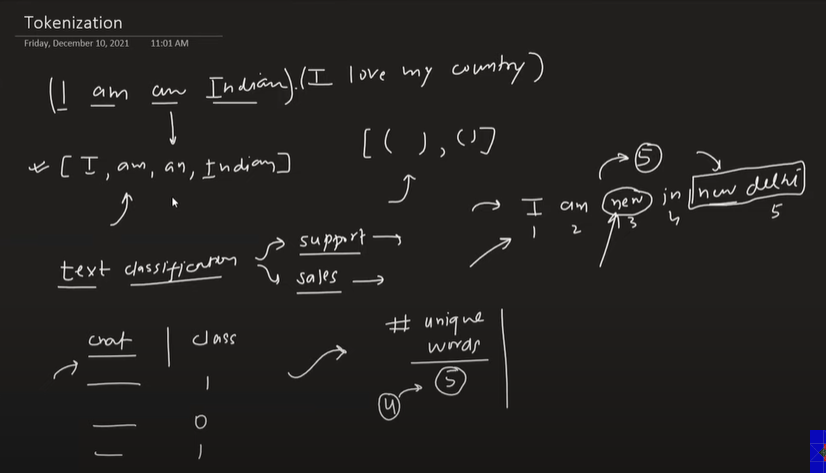 Tokenization
Friday, December 10, 2021 11:01 AM
(I am an Indian).(I love my country)
[I, am, an, Indian]
[( ), ( )]
5
I am new in new delhi
1 2 3 4 5
text classification
support
sales
chat | class
1
0
1
# unique
words
5
4